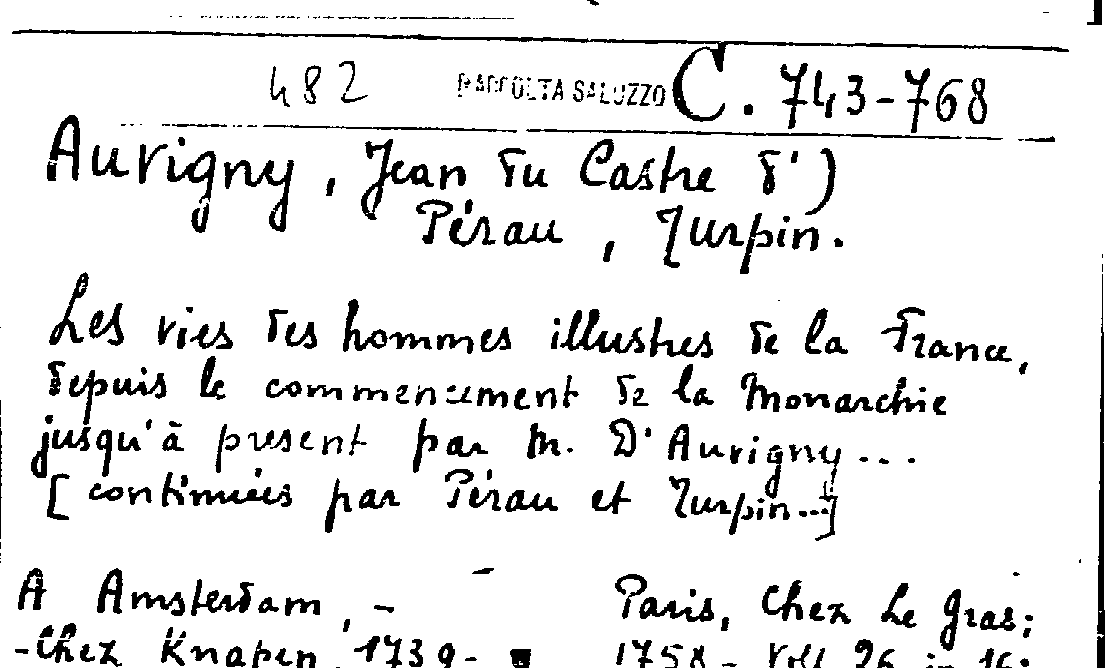 482 RACCOLTA SALUZZO C. 743-768
Aurigny, Jean du Castre d')
Pérau, Turpin.
Les vies des hommes illustres de la France,
depuis le commencement de la Monarchie
jusqu'à present par M. D'Aurigny...
[continuées par Pérau et Turpin...]
A Amsterdam, - Paris, Chez Le Gras;
-Chez Knapen, 1739- 1758- Voll 26 in 16: